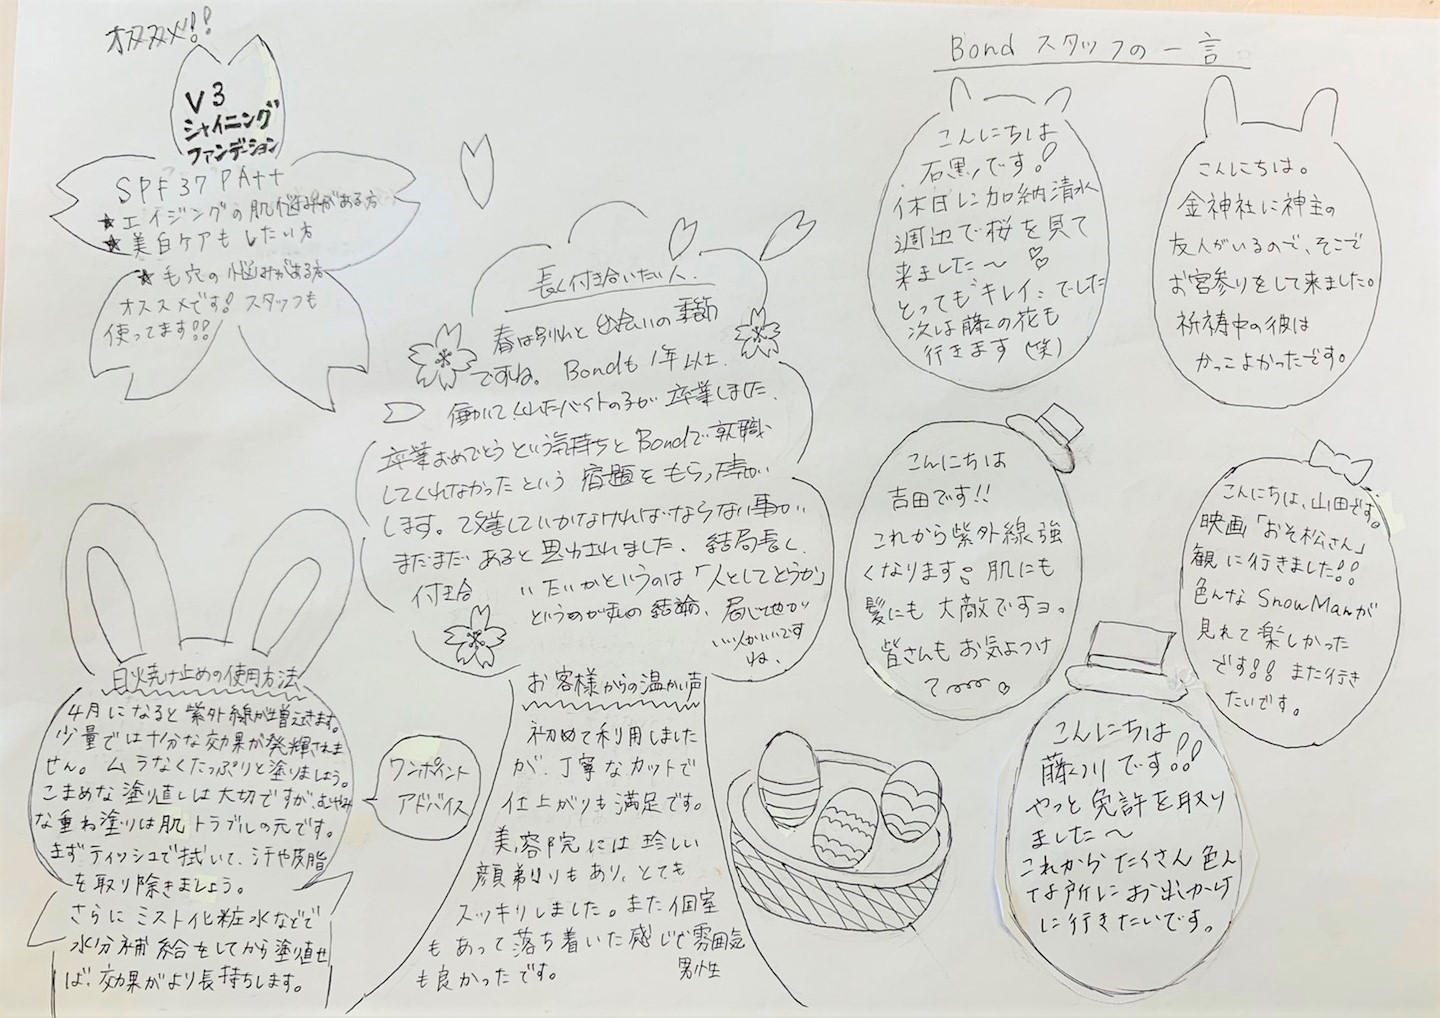 オススメ!!
V3
シャイニング
ファンデーション
SPF37 PA++
★エイジングの肌悩みがある方
★美白ケアもしたい方
★毛穴の悩みがある方
オススメです! スタッフも
使ってます!!
長く付き合いたい人.
春は別れと出会いの季節
ですね。Bondも1年以上.
働いてくれたバイトの子が卒業しました.
卒業おめでとうという気持ちとBondで就職
してくれなかったという宿題をもらった気が
します。改善していかなければならない事が
まだまだあると思わされました、結局長く
付き合いたいかというのは「人としてどうか」
というのが私の結論、
いい人がいいです
ね、
日焼け止めの使用方法
4月になると紫外線が増えきます。
少量では十分な効果が発揮されま
せん。ムラなくたっぷりと塗りましょう。
こまめな塗り直しは大切ですが、むやみ
な重ね塗りは肌トラブルの元です。
まずティッシュで拭いて、汗や皮脂
を取り除きましょう。
さらにミスト化粧水などで
水分補給をしてから塗り直せ
ば、効果がより長持ちします。
ワンポイント
アドバイス
お客様からの温かい声
初めて利用しました
が、丁寧なカットで
仕上がりも満足です。
美容院には珍しい
顔剃りもあり、とても
スッキリしました。また個室
もあって落ち着いた感じで雰囲気
も良かったです。
男性
Bond スタッフの一言
こんにちは
石黒です!
休日に加納清水
週辺で桜を見て
来ました〜♡♡
とってもキレイでした
次は藤の花も
行きます(笑)
こんにちは。
金神社に神主の
友人がいるので、そこで
お宮参りをして来ました。
祈祷中の彼は
かっこよかったです。
こんにちは
吉田です!!
これから紫外線強
くなります! 肌にも
髪にも大敵ですヨ。
皆さんもお気よつけ
て
こんにちは、山田です。
映画「おそ松さん」
観に行きました!!
色んなSnowManが
見れて楽しかった
です!! また行き
たいです。
こんにちは
藤刈です!!
やっと免許を取り
ました〜
これからたくさん色ん
な所にお出かけ
に行きたいです。